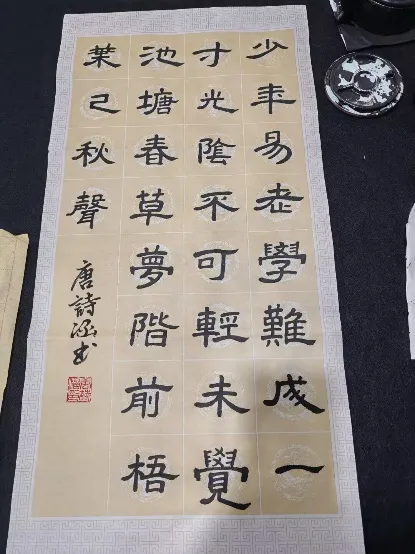 少年易老學難成一
寸光陰不可輕未覺
池塘春草夢階前梧
葉已秋聲
唐詩涵书